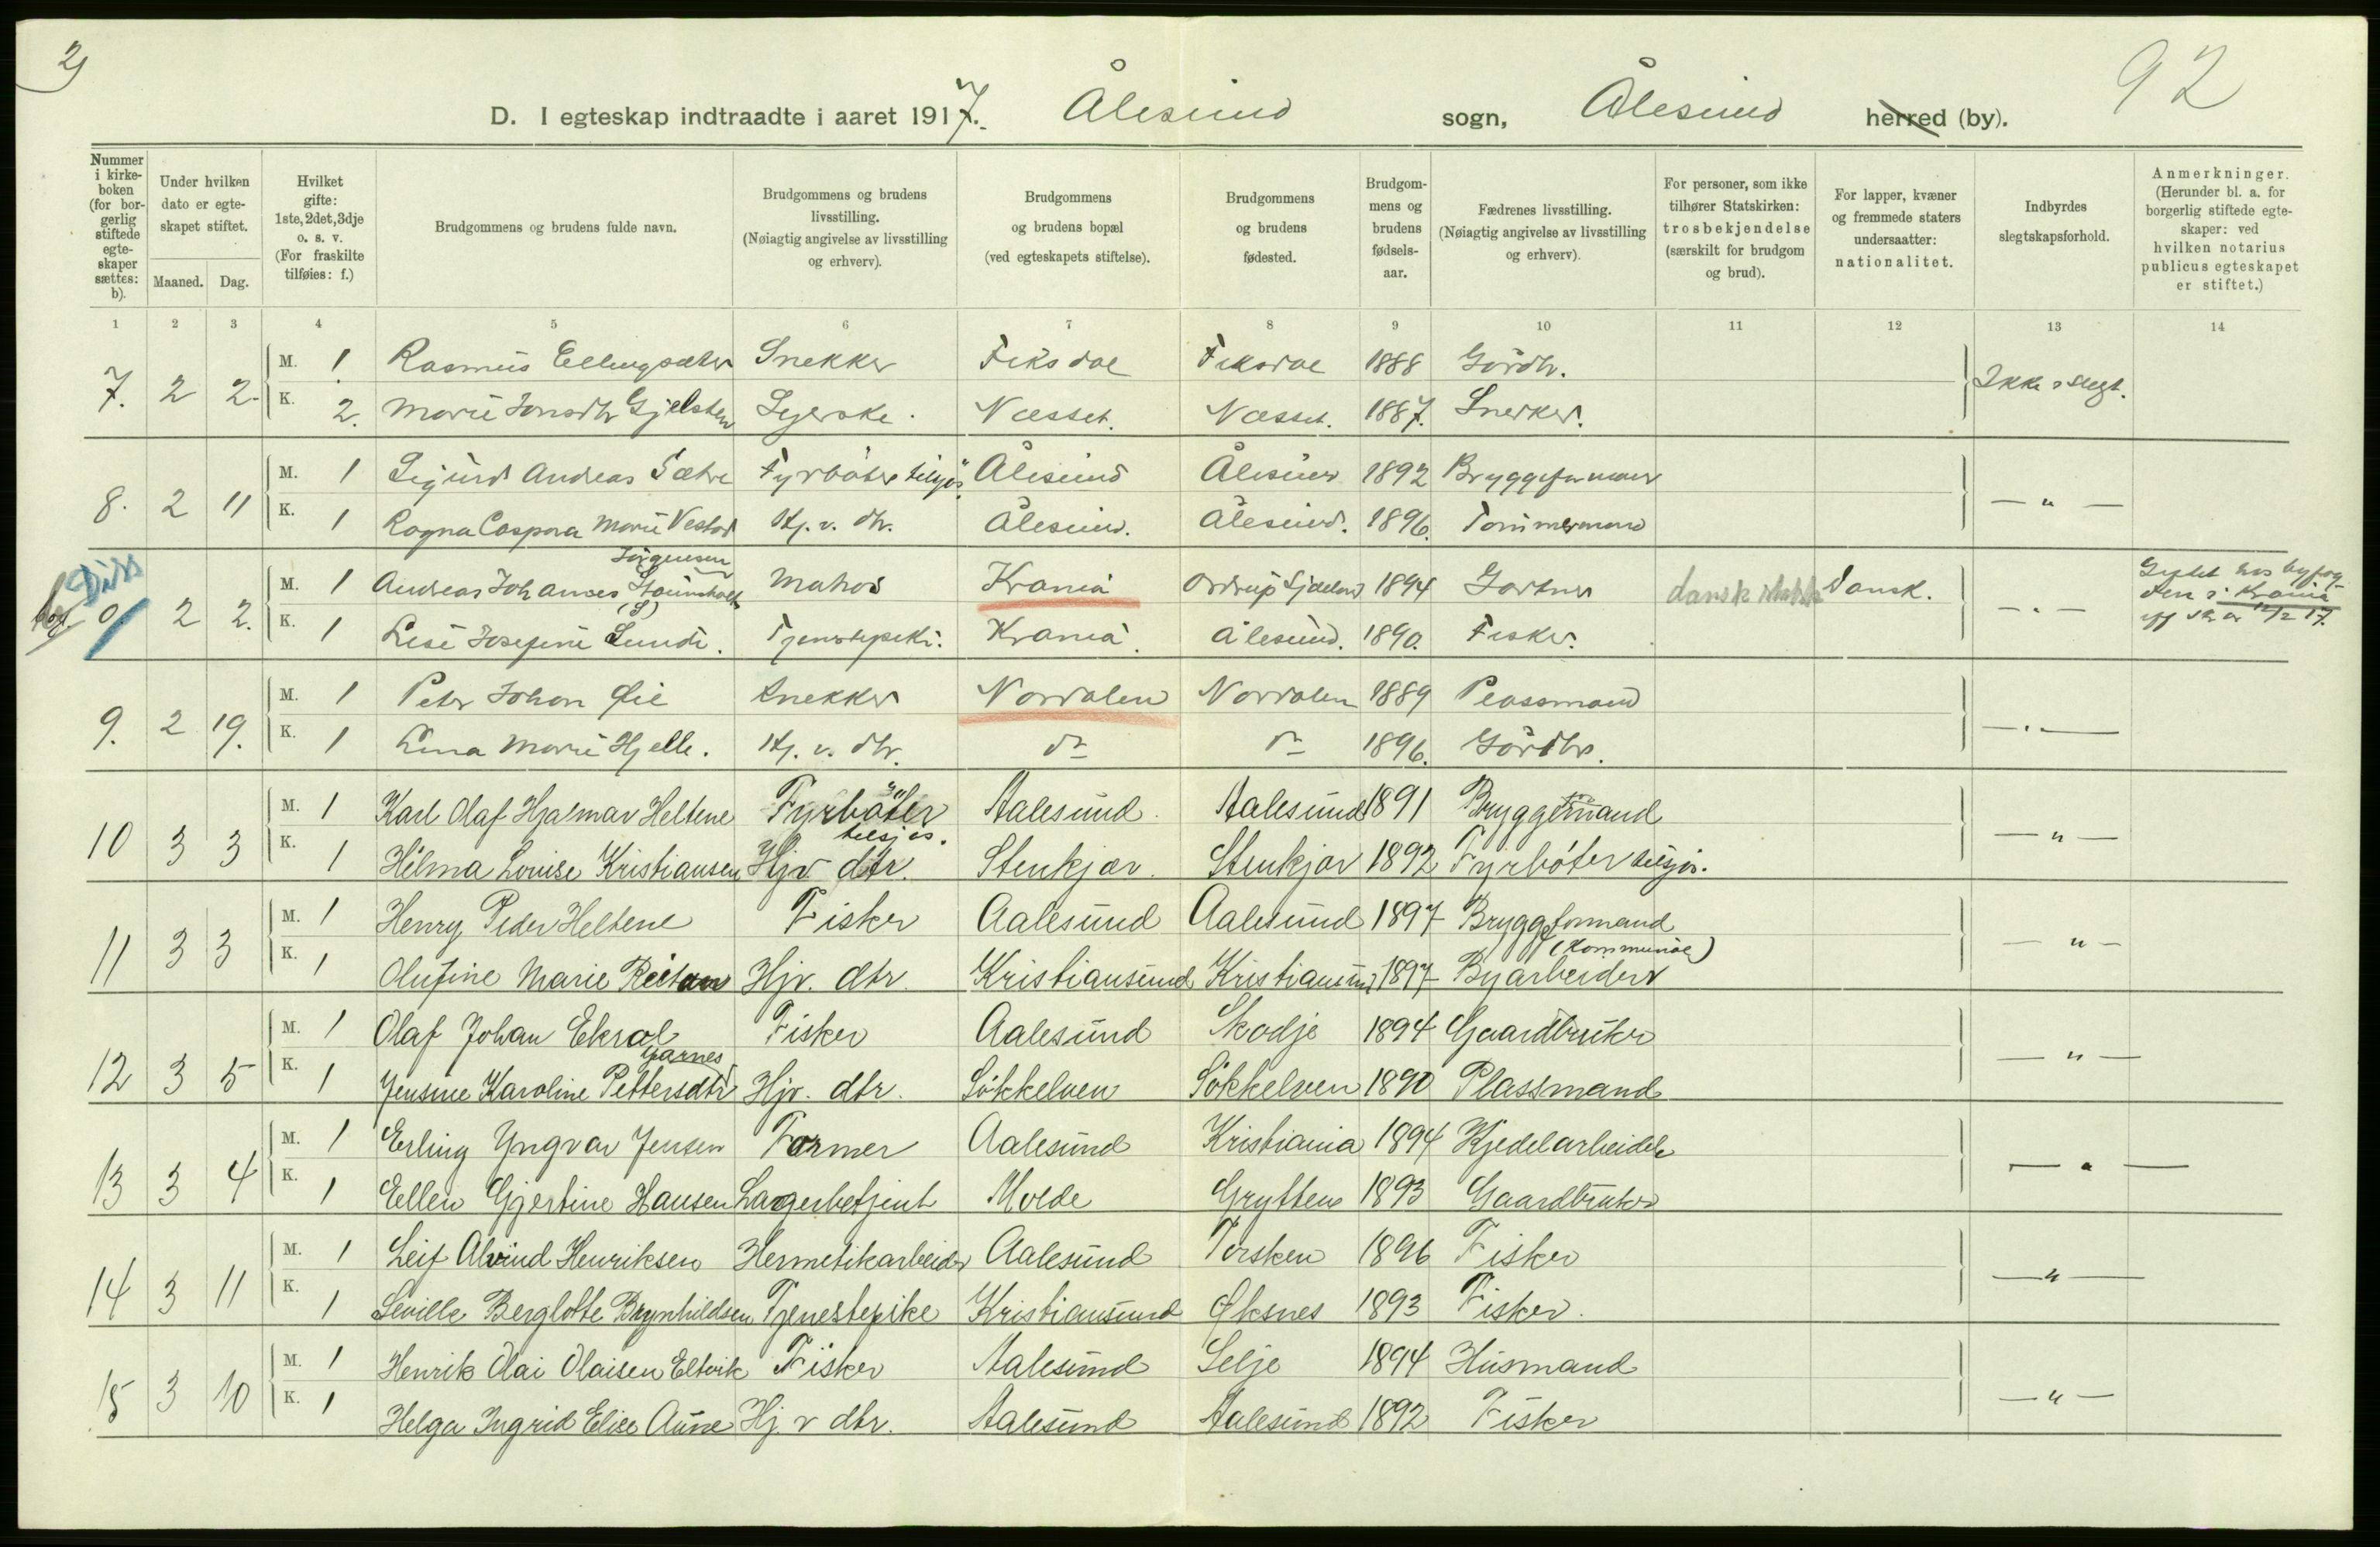 2)
92
D. I egteskap indtraadte i aaret 1917. Ålesund sogn, Ålesund herred (by).
Nummer i kirkeboken (for borgerlig stiftede egteskaper sættes: b). Under hvilken dato er egteskapet stiftet. Maaned. Dag. Hvilket gifte: 1ste, 2det, 3dje o. s. v. (For fraskilte tilføies: f.) Brudgommens og brudens fulde navn. Brudgommens og brudens livsstilling. (Nøiagtig angivelse av livsstilling og erhverv). Brudgommens og brudens bopæl (ved egteskapets stiftelse). Brudgommens og brudens fødested. Brudgommens og brudens fødselsaar. Fædrenes livsstilling. (Nøiagtig angivelse av livsstilling og erhverv). For personer, som ikke tilhører Statskirken: trosbekjendelse (særskilt for brudgom og brud). For lapper, kvæner og fremmede staters undersaatter: nationalitet. Indbyrdes slegtskapsforhold. Anmerkninger. (Herunder bl. a. for borgerlig stiftede egteskaper: ved hvilken notarius publicus egteskapet er stiftet.)
1 2 3 4 5 6 7 8 9 10 11 12 13 14
7. 2 2. M. 1 Rasmus Ellingsæter Snekker Fiksdal Fiksdal 1888 Gårdbr. Ikke i slegt.
K. 2. Marie Jonsdtr Gjelsten Syerske. Nesset. Nesset. 1887. Snekker.
8. 2 11 M. 1 Sigurd Andreas Sætre Fyrbøter tilsjøs Ålesund Ålesund 1892 Bryggeformann — " —
K. 1 Ragna Caspara Marie Vestad Hj. v. dtr. Ålesund. Ålesund. 1896. Tømmermand
Jörgensen
0 2 2. M. 1 Andreas Johannes Matros Krania 1894 Gartner dansk Dansk. — " —
K. 1 Lise Josefine Lunde. Tjenestepike. Krania. Ålesund. 1890. Fisker.
9. 2 19. M. 1 Peter Johan Øie Snekker Norddalen Norddalen 1889 Plassmand — " —
K. 1 Lina Marie Hjelle. Hj. v. dtr. do do 1896. Gårdbr.
10 3 3 M. 1 Karl Olaf Hjalmar Heltene Fyrbøter tilsjøs. Aalesund. Aalesund 1891 Bryggeformand — " —
K. 1 Hilma Louise Kristiansen Hjv dtr. Stenkjær. Stenkjær 1892 Fyrbøter tilsjøs.
11 3 3 M. 1 Henry Peder Heltene Fisker Aalesund Aalesund 1897 Bryggeformand — " —
K. 1 Olufine Marie Reitan Hjv. dtr. Kristiansund Kristiansund 1897 Byarbeider (Kommunal)
12 3 5 M. 1 Olaf Johan Ekrol Fisker Aalesund Skodje 1894 Gaardbruker — " —
K. 1 Jensine Karoline Pettersdtr Garnes Hjv. dtr. Søkkelven Søkkelven 1890 Plassmand
13 3 4 M. 1 Erling Yngvar Jensen Former Aalesund Kristiania 1894 Kjedelarbeider — " —
K. 1 Ellen Gjertine Hansen Lagerbetjent Molde Grytten 1893 Gaardbruker
14 3 11 M. 1 Leif Alvind Henriksen Hermetikarbeider Aalesund Torsken 1896 Fisker — " —
K. 1 Seville Berglotte Brynhildsen Tjenestepike Kristiansund Øksnes 1893 Fisker.
15 3 10 M. 1 Henrik Olai Olaisen Eltvik Fisker Aalesund Selje 1894 Husmand — " —
K. 1 Helga Ingrid Elise Aune Hj. v dtr. Aalesund Aalesund 1892 Fisker